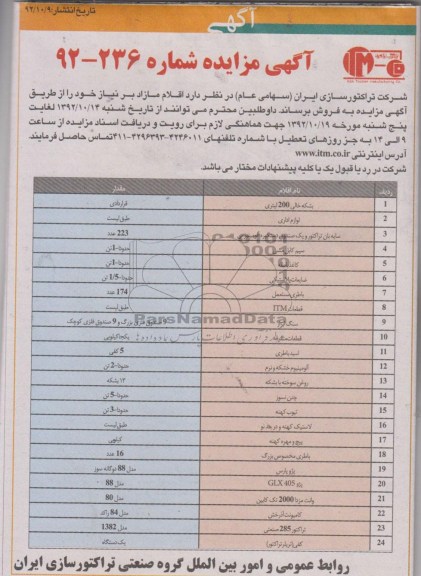 آگهی
تاریخ انتشار: ۹۲/۱۰/۹
آگهی مزایده شماره ۲۳۶-۹۲
شرکت تراکتورسازی ایران (سهامی عام) در نظر دارد اقلام مازاد بر نیاز خود را از طریق
آگهی مزایده به فروش برساند. داوطلبین محترم می توانند از تاریخ شنبه ۱۳۹۲/۱۰/۱۴ لغایت
پنج شنبه مورخه ۱۳۹۲/۱۰/۱۹ جهت هماهنگی لازم برای رویت و دریافت اسناد مزایده از ساعت
۹ الی ۱۴ به جز روزهای تعطیل با شماره تلفنهای ۴۲۴۶۰۱۱-۴۲۹۶۳۹۳-۰۴۱۱ تماس حاصل فرمایند
آدرس اینترنتی www.itm.co.ir
شرکت در رد یا قبول یک یا کلیه پیشنهادات مختار می باشد.
ردیف نام اقلام مقدار
1 بشکه خالی 200 لیتری قراردادی
2 لوازم اداری طبق لیست
3 سایه بان تراکتور و یک 223 عدد
4 سیم حدودا-1 تن
5 حدودا-1 تن
6 ضایعات حدودا-1/5 تن
7 باطری مستعمل 174 عدد
8 قطعات ITM طبق لیست
9 صندوق فلزی بزرگ و 9 صندوق فلزی کوچک
10 قطعات
11 اسید باطری 5 تنی
12 آلومینیوم خشکه و نرم حدودا-2 تن
13 روغن سوخته با بشکه ۱۳ بشکه
14 چدن سوز حدودا-5 تن
15 تیوپ کهنه حدودا-3 تن
16 لاستیک کهنه و در حد نو طبق لیست
17 پیچ و مهره کهنه کیلویی
18 باطری مخصوص بزرگ 16 عدد
19 پژو پارس مدل 88 دوگانه سوز
20 پژو GLX 405 مدل 88
21 وانت مزدا 2000 تک کابین مدل 80
22 کامیونت آذرخش مدل 84
23 تراکتور 285 صنعتی مدل 1382
24 یک دستگاه
ParsNamadData
روابط عمومی و امور بین الملل گروه صنعتی تراکتورسازی ایران